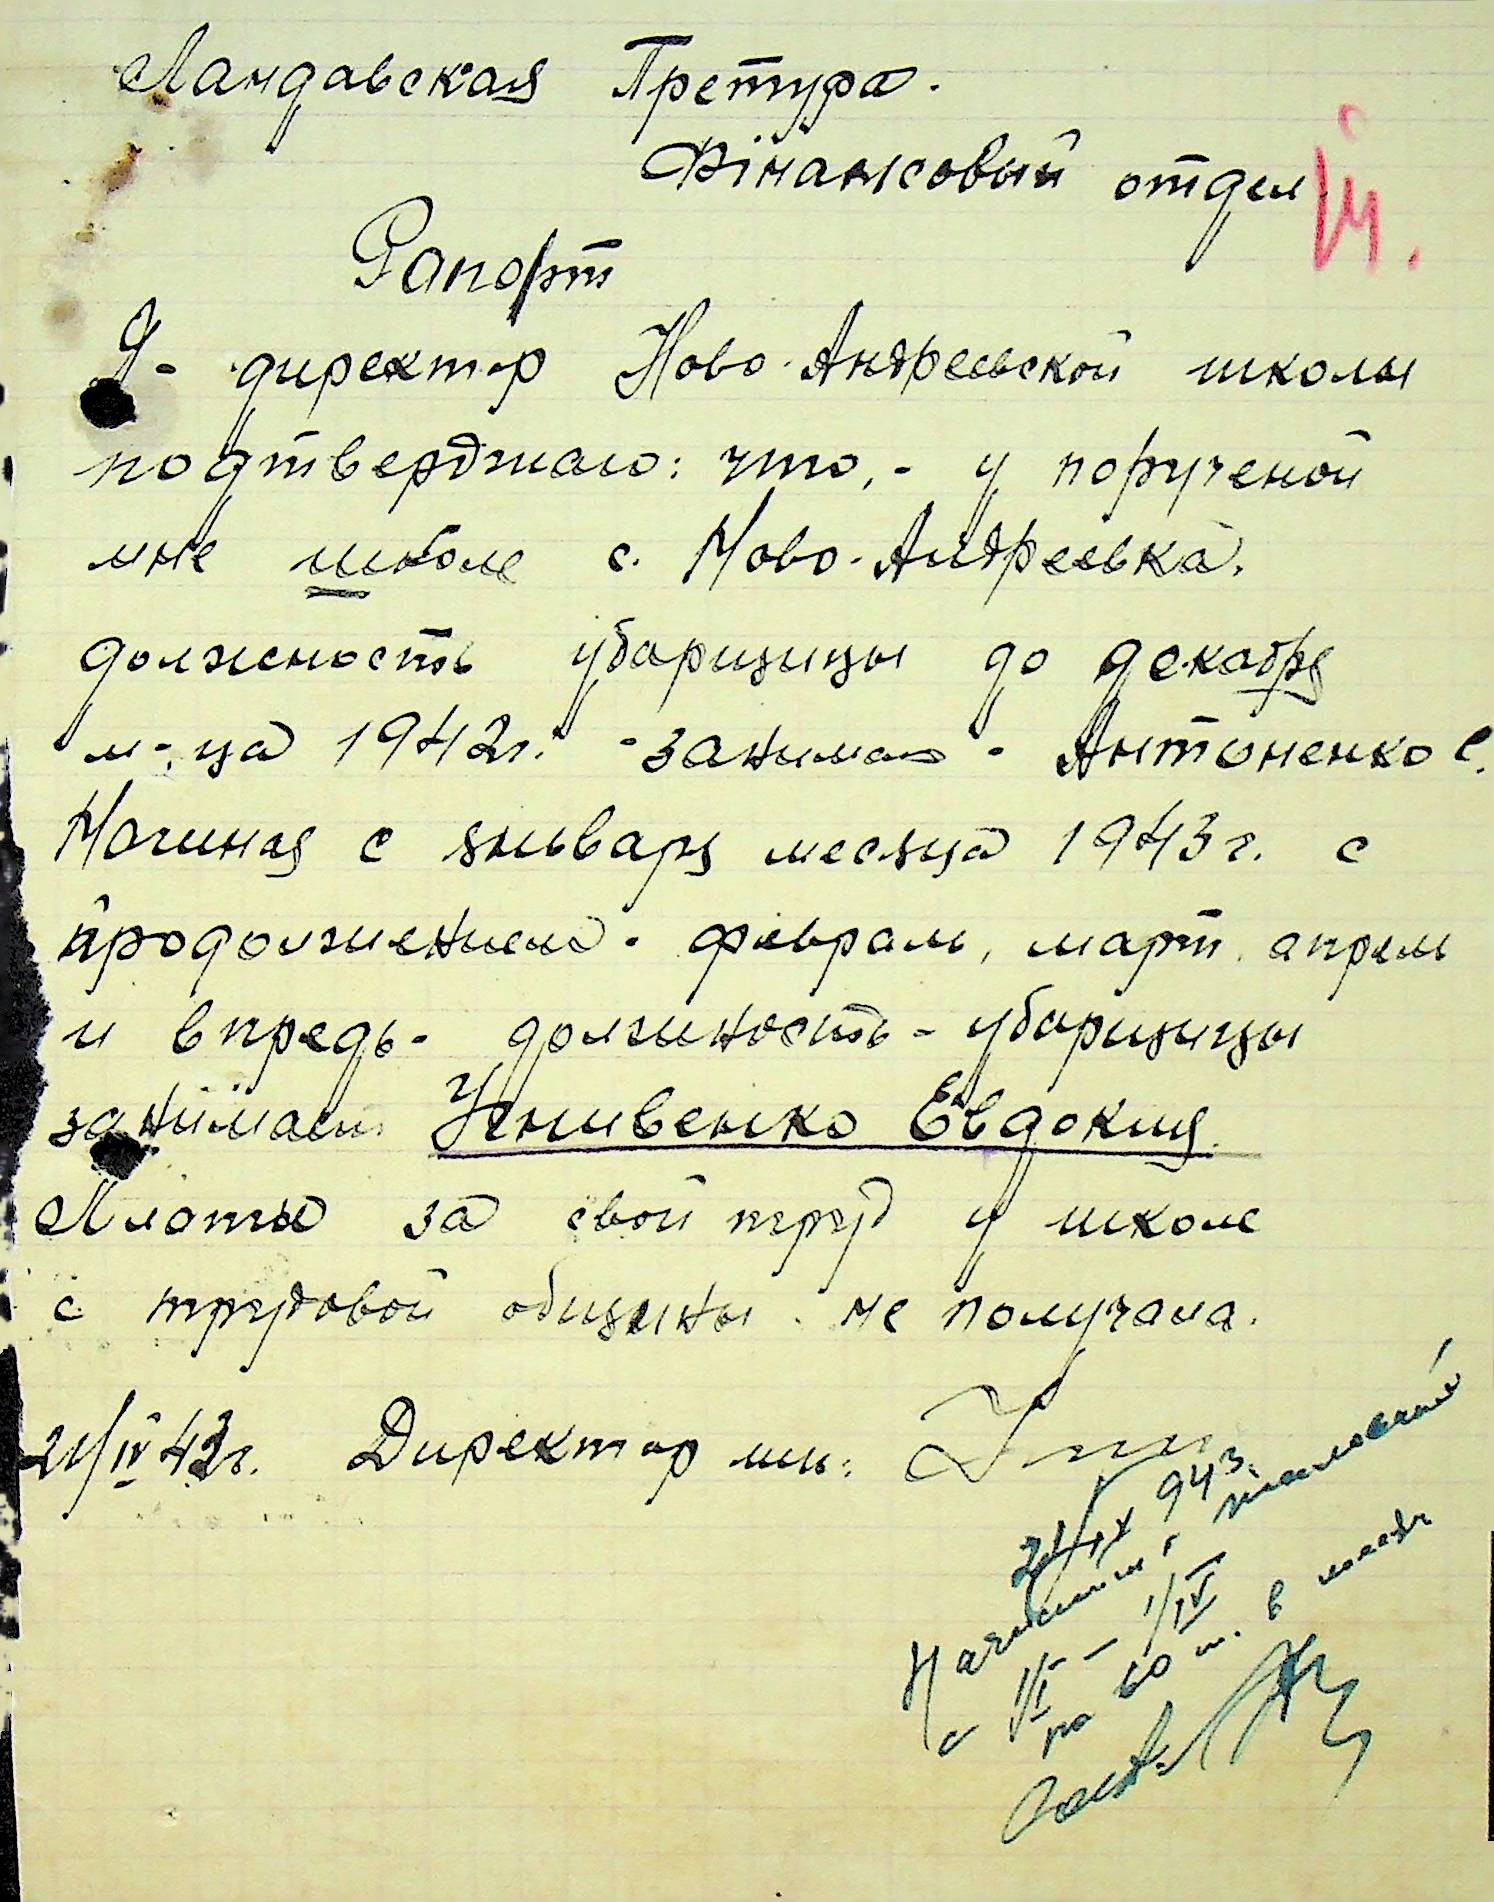 Ландавская Претура.
Фінансовый отдел
Рапорт
Я - директор Ново-Андреевской школы
подтверджаю: что, - у порученой
мне школе с. Ново-Андреевка.
должность уборщицы до декабря
м-ца 1942г. - занимала - Антоненко С.
Начиная с январь месяца 1943г. с
продолжением - февраль, март, апрель
и впредь - должность - уборщицы
занімает Усливенко Евдокия.
Платы за свой труд у школе
с трудовой общины не получала.
21/IV 43г. Директор шк:
943
с 1/I – 1/IV
по 60 м. в месяц